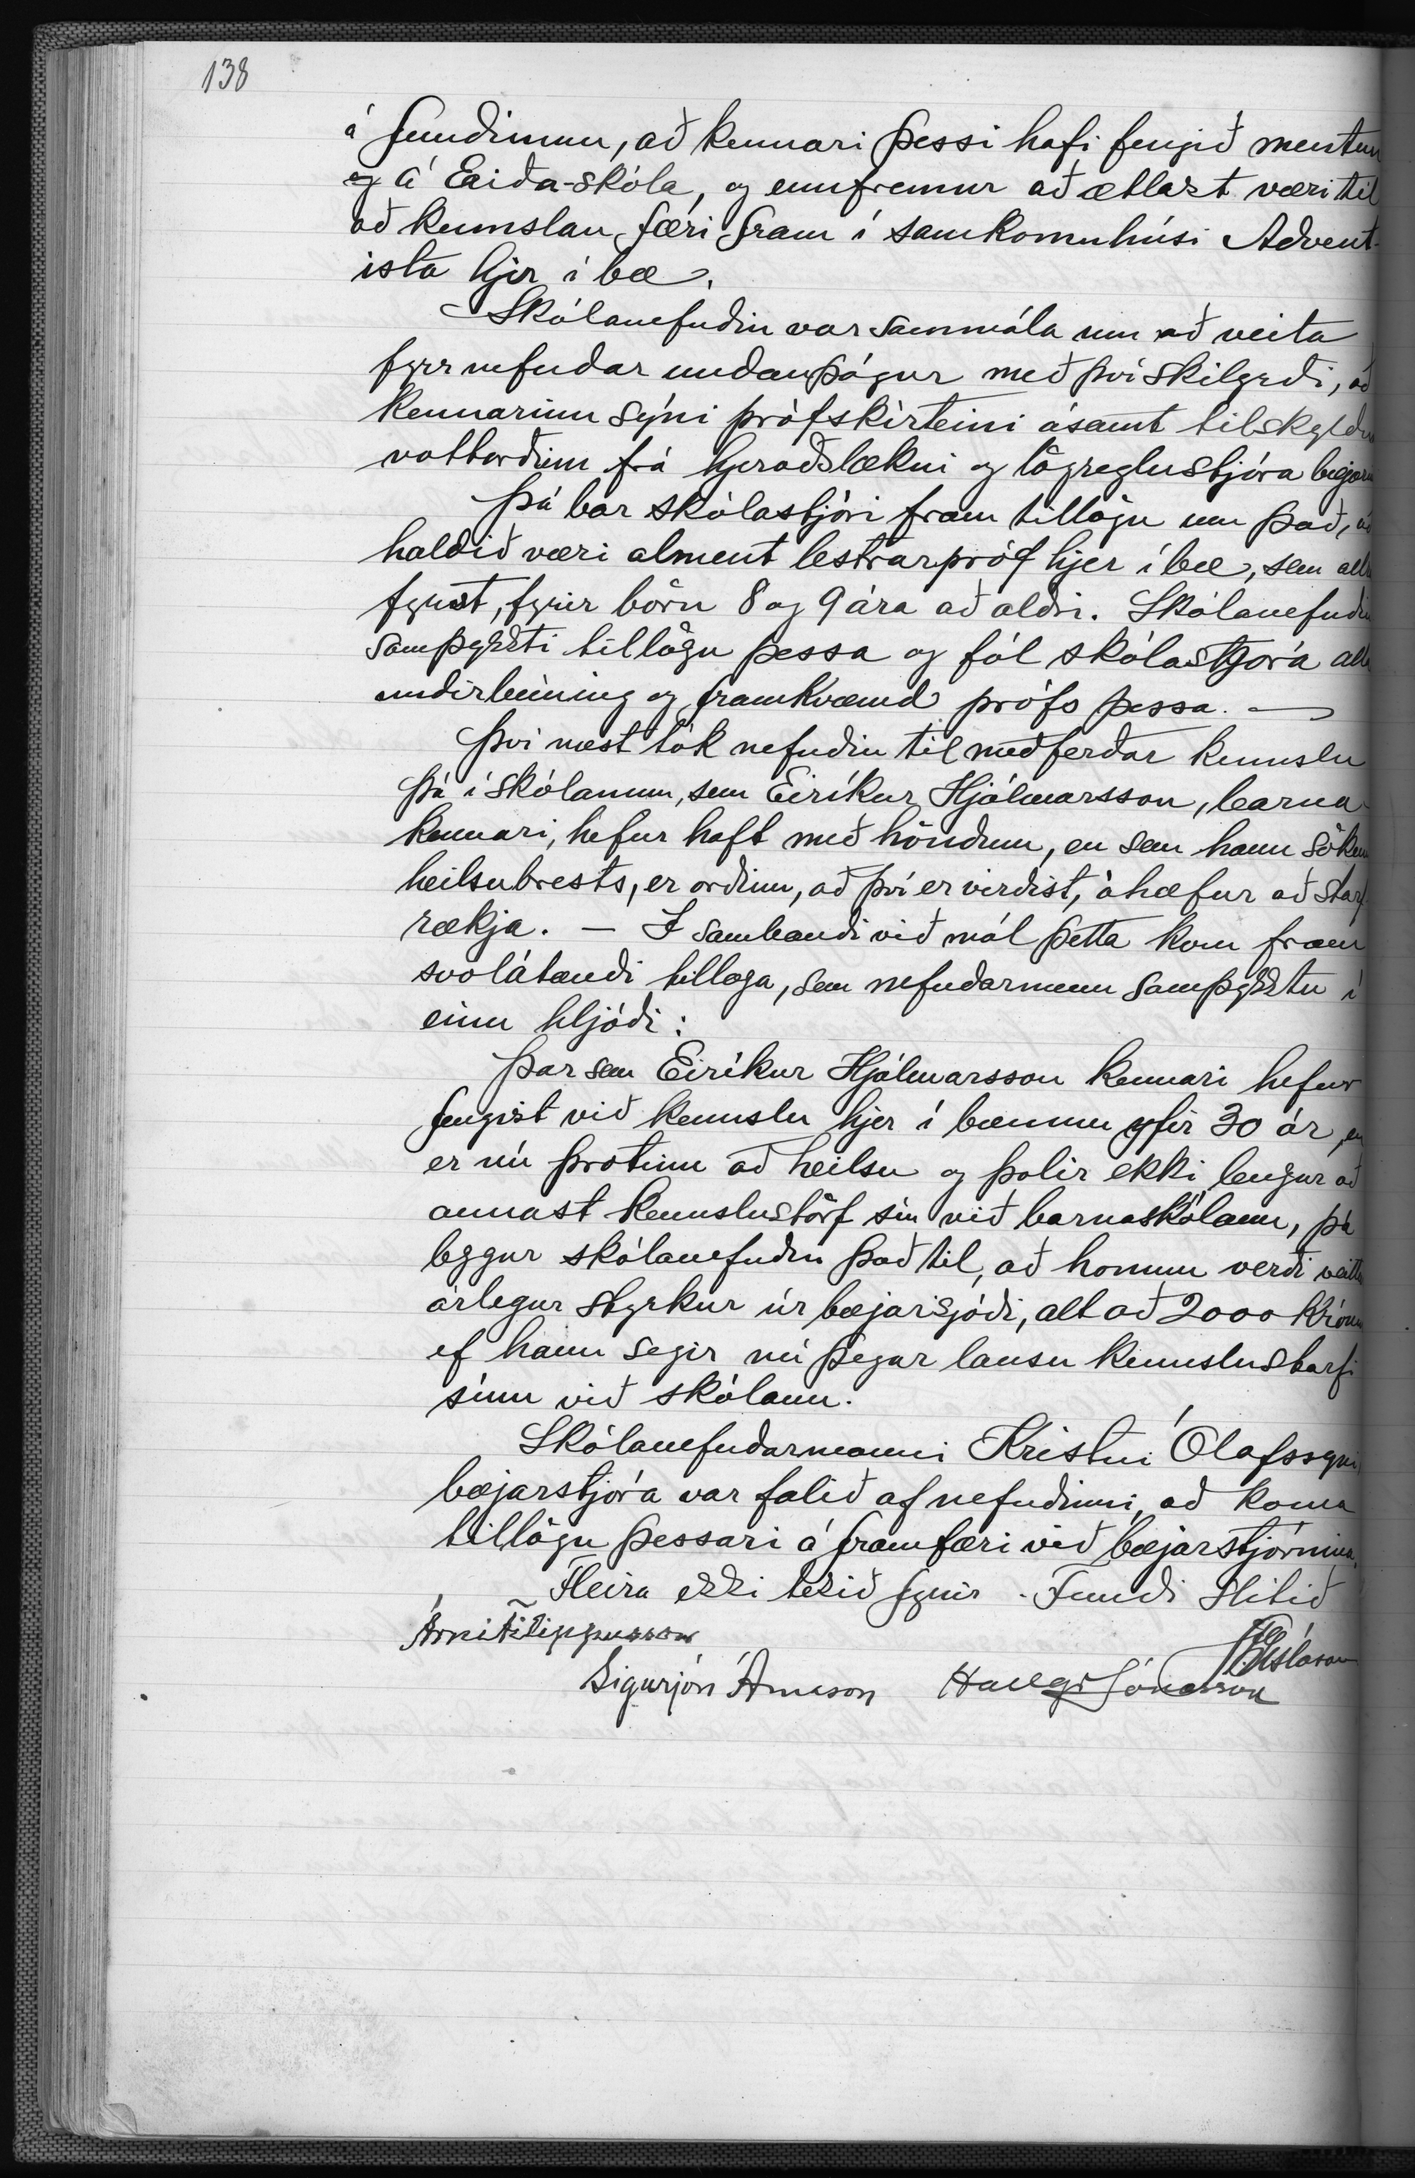 138
á fundinum, að kennari þessi hafi fengið mentun
og á Eiða-skóla, og ennfremur að ætlast væri til
að kennslan færi fram í samkomuhúsi Advent-
ista hjer í bæ.
Skólanefndin var sammála um að veita
fyrrnefndar undanþágur með því skilyrði, að
kennarinn sýni prófskírteini ásamt tilskyldum
vottorðum frá hjeraðslækni og lögreglustjóra bæjarins
Þá bar skólastjóri fram tillögu um það, að
haldið væri alment lestrarpróf hjer í bæ, sem allra
fyrst, fyrir börn 8 og 9 ára að aldri. Skólanefndin
samþykkti tillögu þessa og fól skólastjóra allan
undirbúning og framkvæmd prófs þessa. —
Því næst tók nefndin til meðferðar kennslu
þá í skólanum, sem Eiríkur Hjálmarsson, barna-
kennari, hefur haft með höndum, en sem hann sökum
heilsubrests, er orðinn, að því er virðist, óhæfur að starf-
rækja. — Í sambandi við mál þetta kom fram
svolátandi tillaga, sem nefndarmenn samþykktu í
einu hljóði:
Þar sem Eiríkur Hjálmarsson kennari hefur
fengist við kennslu hjer í bænum yfir 30 ár, en
er nú þrotinn að heilsu og þolir ekki lengur að
annast kennslustörf sín við barnaskólann, þá
leggur skólanefndin það til, að honum verði veittur
árlegur styrkur úr bæjarsjóði, alt að 2000 krónur
ef hann segir nú þegar lausu kennslustarfi
sínu við skólann.
Skólanefndarmanni Kristni Ólafssyni
bæjarstjóra var falið af nefndinni, að koma
tillögu þessari á framfæri við bæjarstjórnina.
Fleira ekki tekið fyrir. Fundi slitið
Árni Filippusson
Gíslason
Sigurjón Árnason Hallgr Jónasson